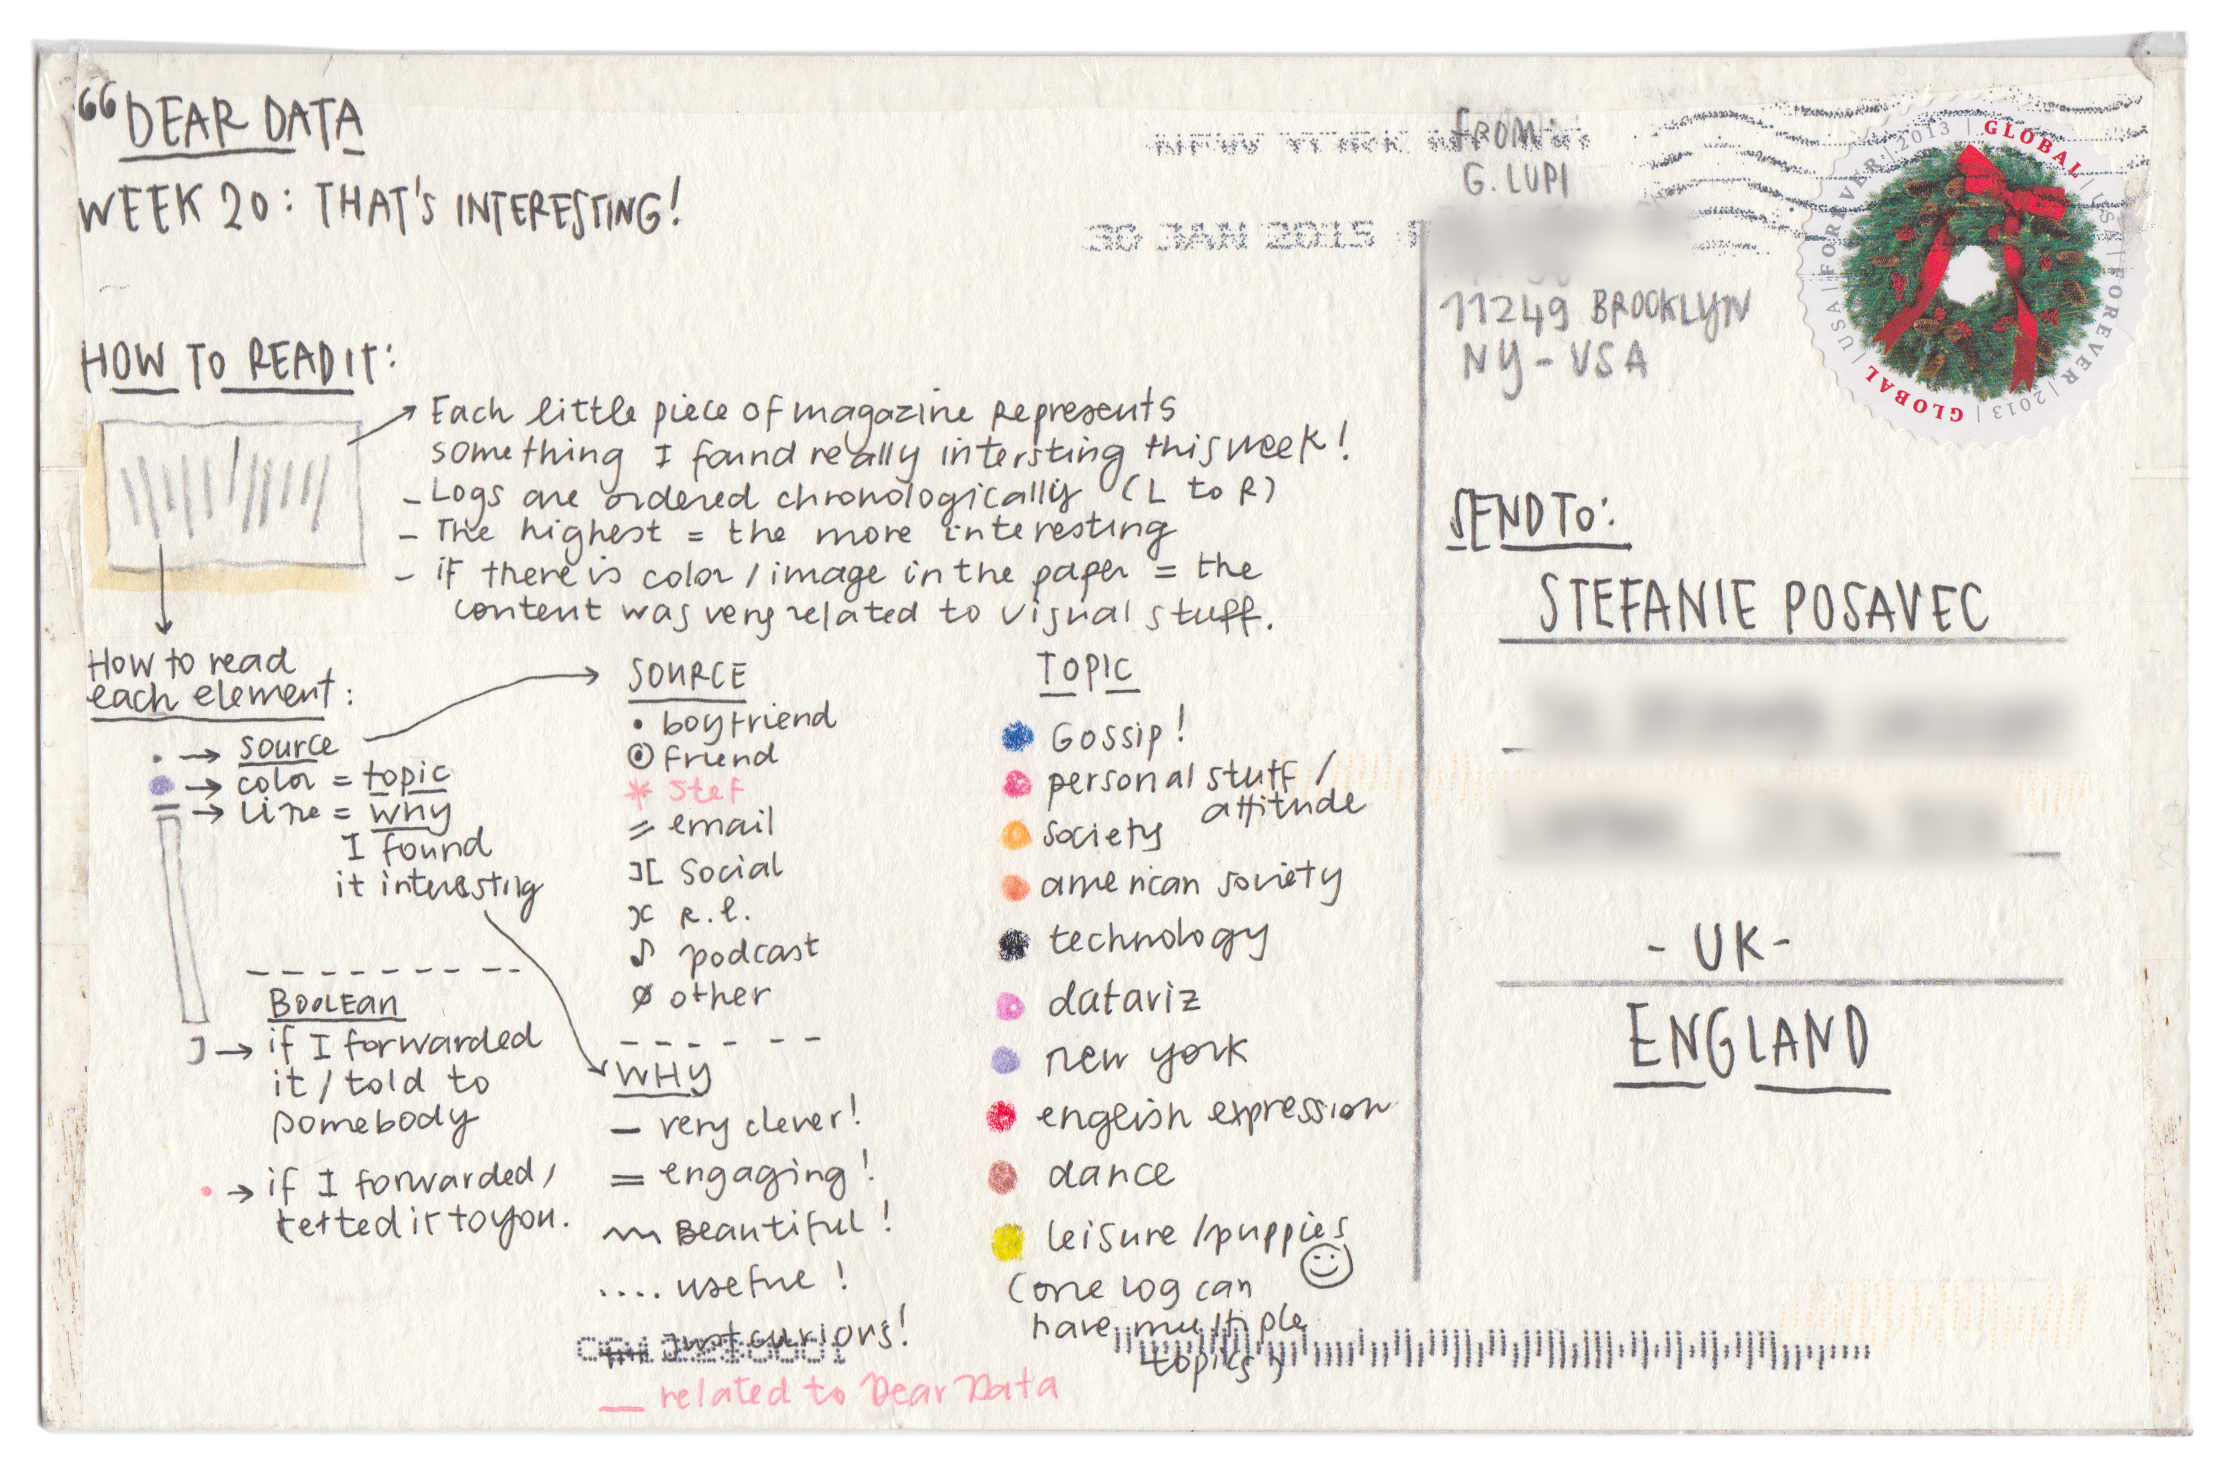 "DEAR DATA
WEEK 20: THAT'S INTERESTING!
HOW TO READ IT:
Each little piece of magazine represents
something I found really intersting this week!
- Logs are ordered chronologically (L to R)
- The highest = the more interesting
- if there is color / image in the paper = the
content was very related to visual stuff.
How to read
each element:
→ source
→ color = topic
→ line = why
I found
it interesting
BOOLEAN
→ if I forwarded
it / told to
somebody
→ if I forwarded /
it to you.
SOURCE
boyfriend
friend
* Stef
= email
][ Social
x R.l.
♪ podcast
ø other
WHY
— very clever!
= engaging!
Beautiful!
.... useful!
Just curious!
__ related to Dear Data
TOPIC
Gossip!
personal stuff /
attitude
society
american society
technology
dataviz
new york
english expression
dance
leisure / puppies
(one log can
have multiple
topics)
30 JAN 2015
FROM:
G. LUPI
11249 BROOKLYN
NY - USA
GLOBAL | USA | FOREVER | 2013 | GLOBAL | USA | FOREVER | 2013 |
SEND TO:
STEFANIE POSAVEC
- UK -
ENGLAND